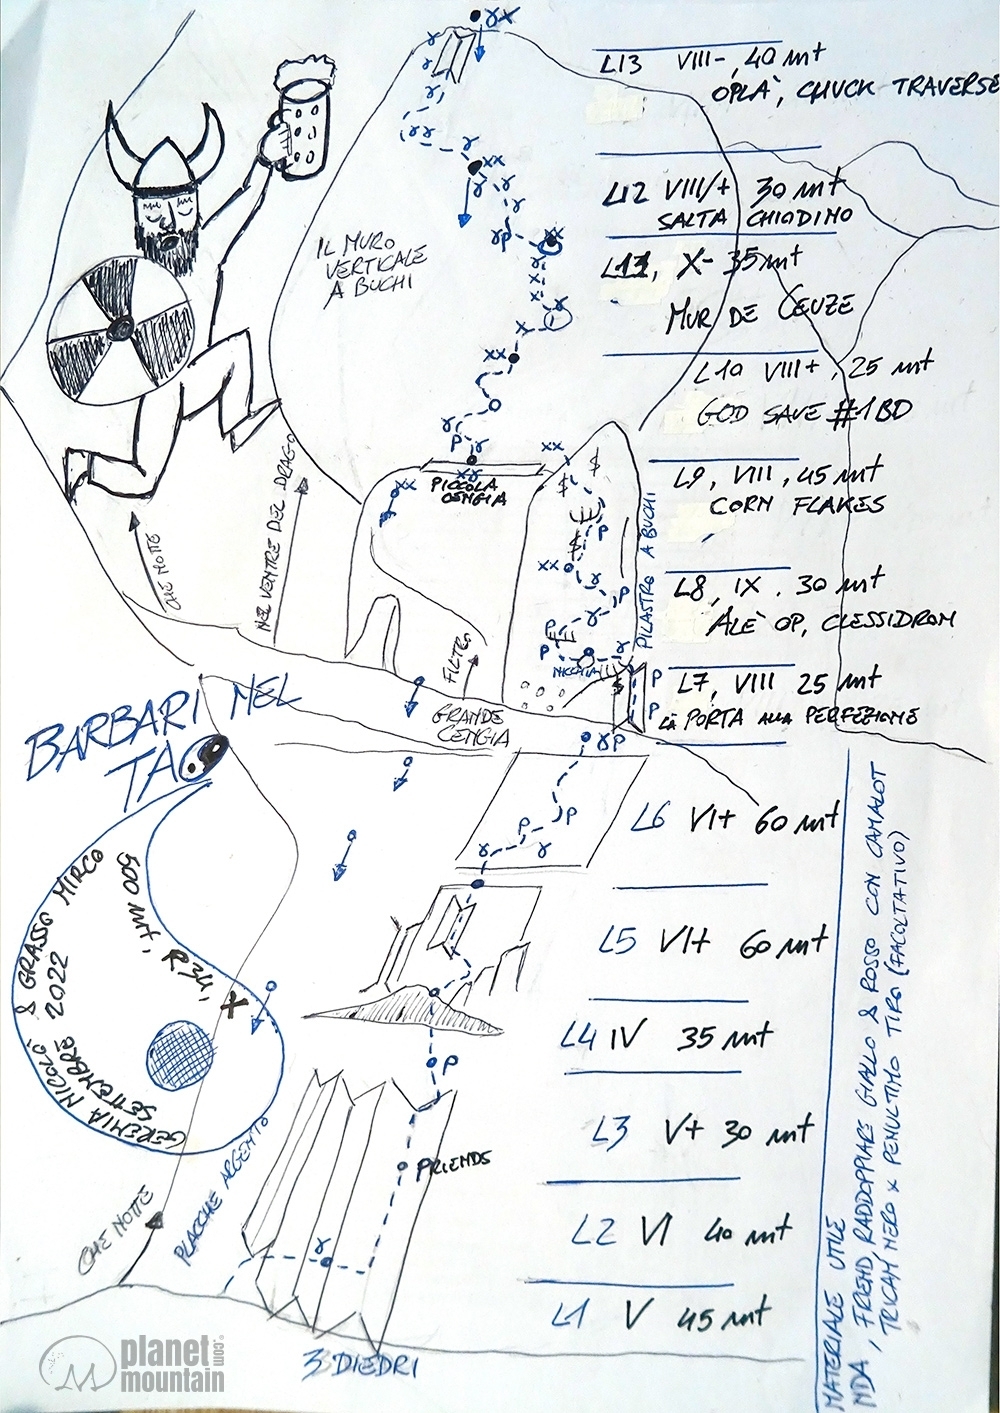 L13 VIII-, 40 mt
OPLÀ, CHUCK TRAVERSE
L12 VIII/+ 30 mt
SALTA CHIODINO
L11, X- 35 mt
MUR DE CEUZE
L10 VIII+, 25 mt
GOD SAVE #1BD
L9, VIII, 45 mt
CORN FLAKES
L8, IX. 30 mt
ALÈ OP, CLESSIDROM
L7, VIII 25 mt
LA PORTA ALLA PERFEZIONE
L6 VI+ 60 mt
L5 VI+ 60 mt
L4 IV 35 mt
L3 V+ 30 mt
L2 VI 40 mt
L1 V 45 mt
IL MURO
VERTICALE
A BUCHI
PICCOLA
CENGIA
PILASTRO A BUCHI
NICCHIA
CHE NOTTE
NEL VENTRE DEL DRAGO
FILTRO
GRANDE
CENGIA
BARBARI NEL
TAO
GEREMIA NICOLÒ & GRASSO MIRCO
SETTEMBRE 2022
500 mt, R3/4, X
FRIENDS
PLACCHE ARGENTO
CHE NOTTE
3 DIEDRI
MATERIALE UTILE
NDA, FRIEND, RADDOPPIARE GIALLO & ROSSO CON CAMALOT
TRICAM NERO x PENULTIMO TIRO (FACOLTATIVO)
planet
mountain
.com